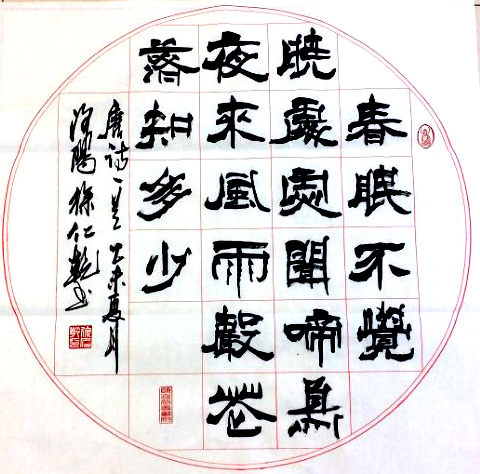 春眠不覺
曉處處聞啼鳥
夜來風雨聲花
落知多少
唐诗一首乙未夏月
陽徐仁书